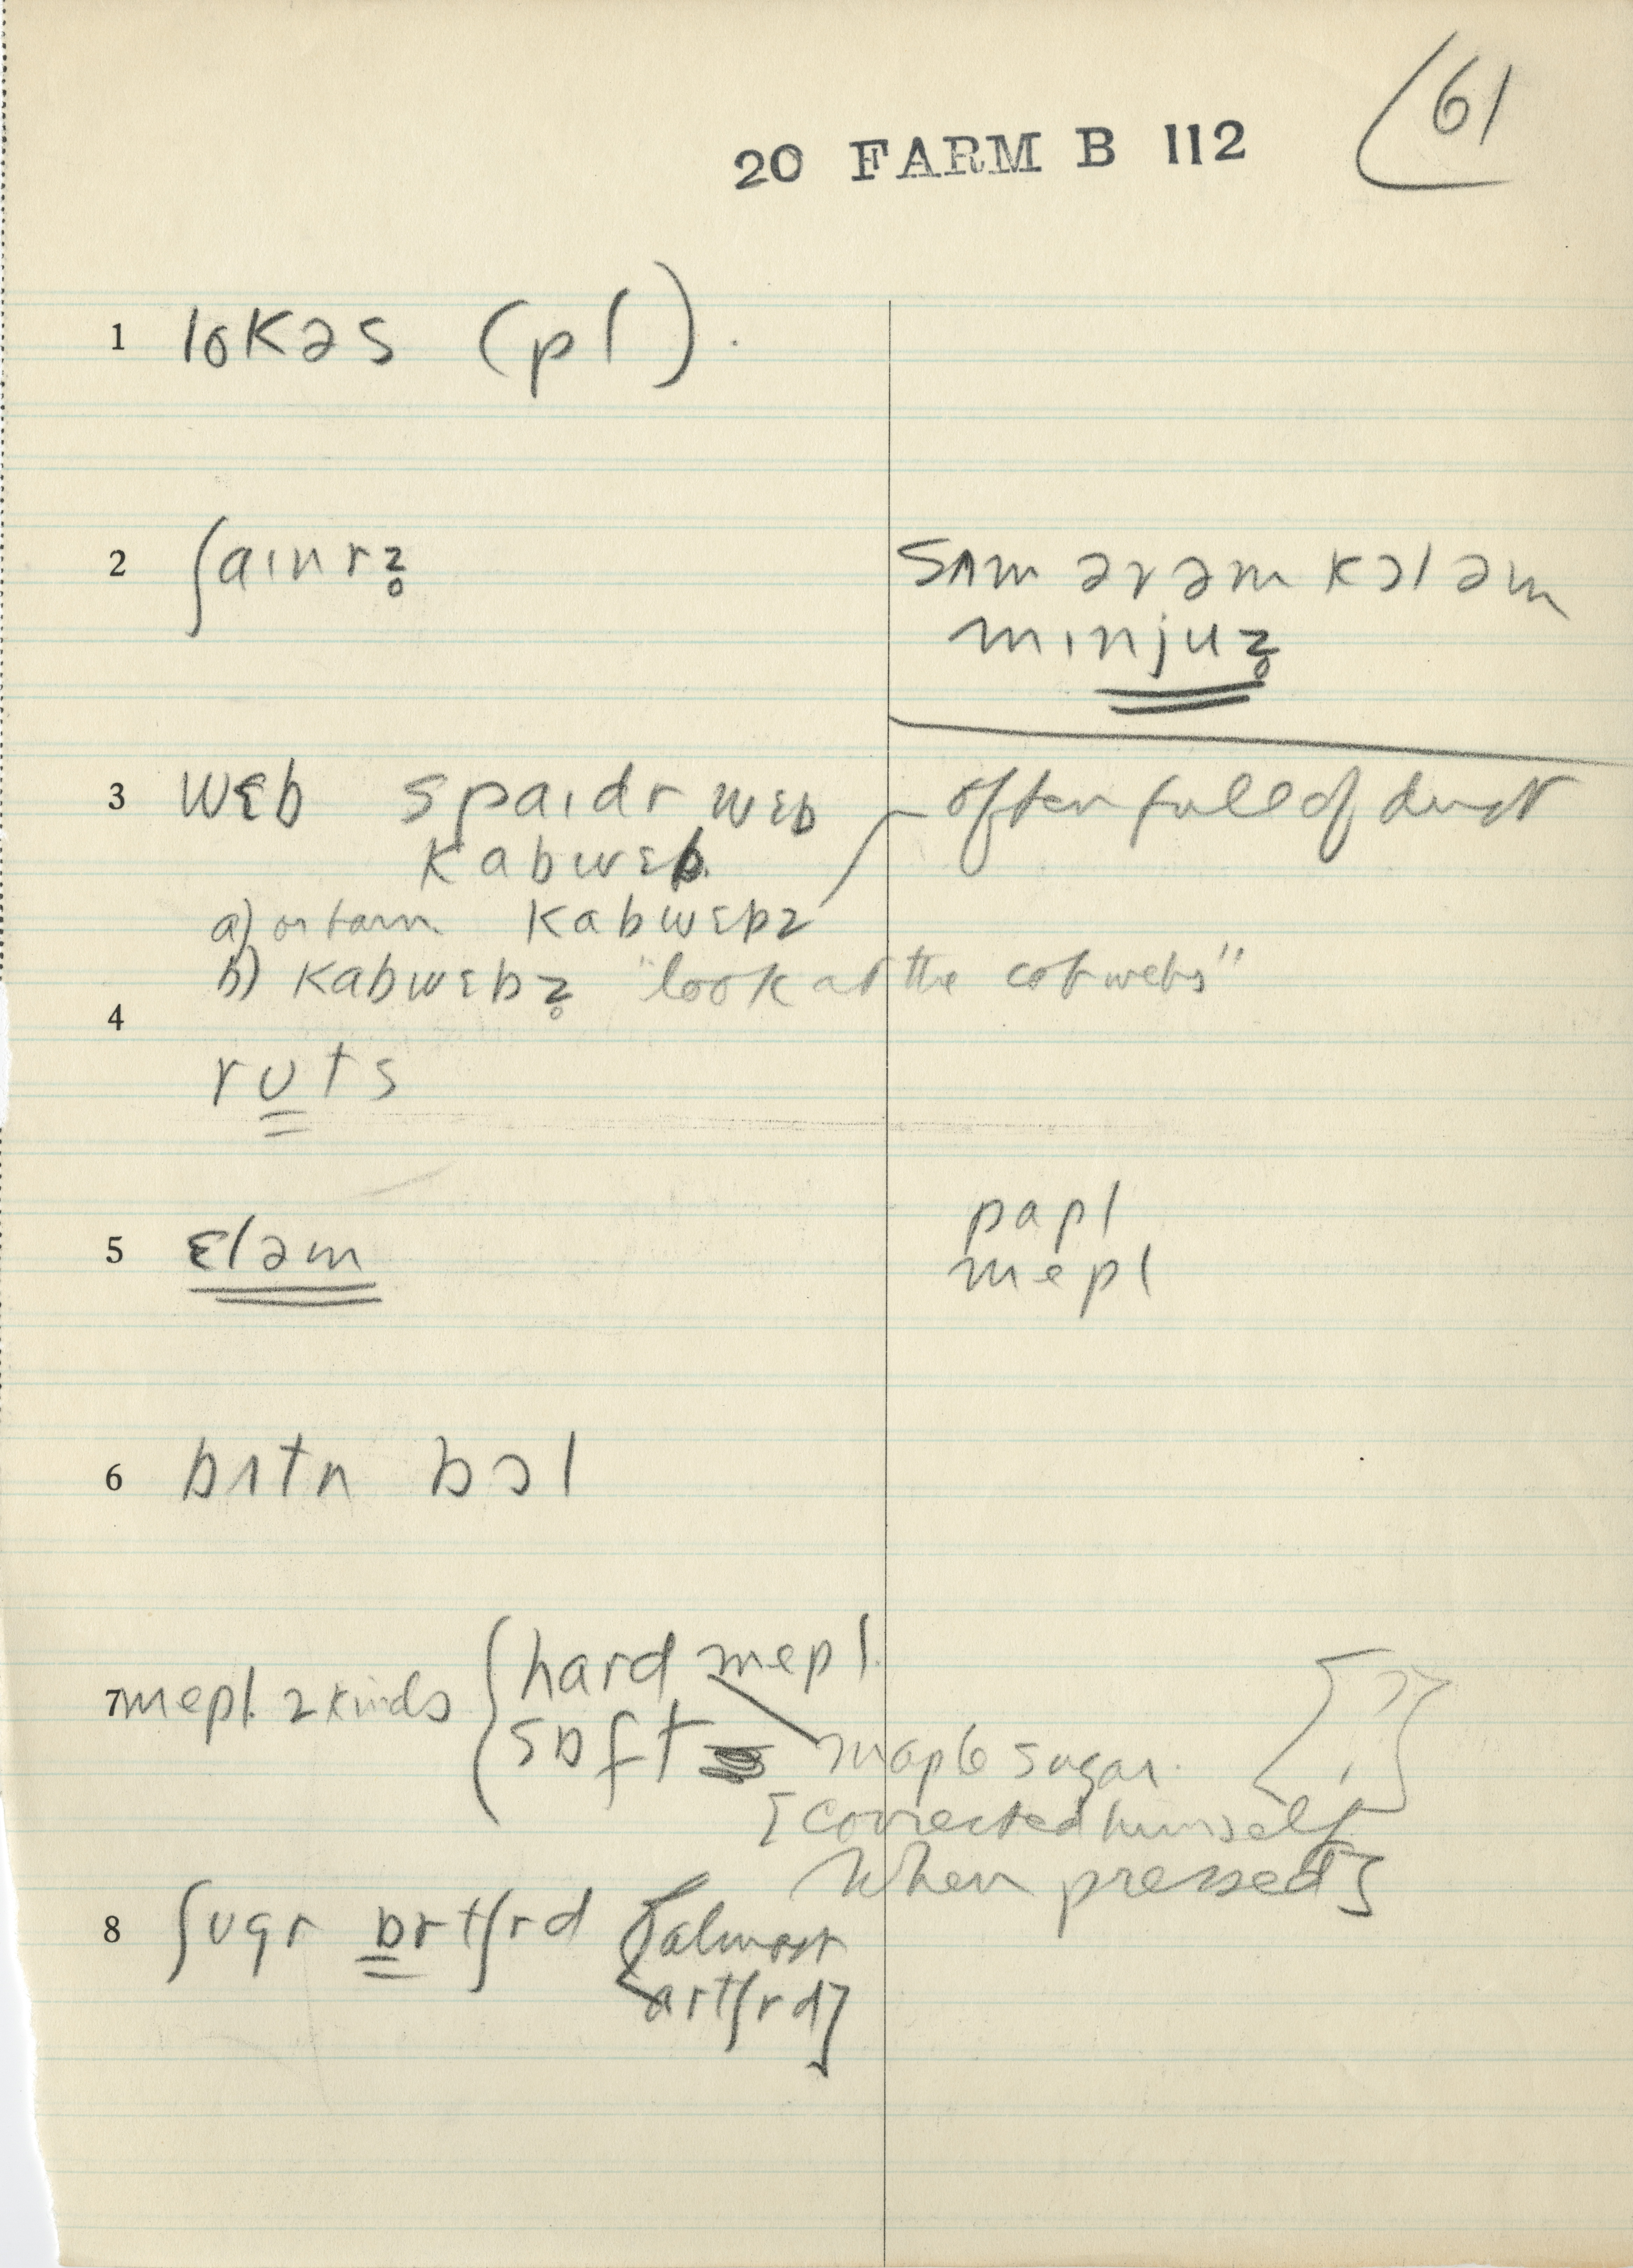 61
20 FARM B 112
1 lokəs (pl).
2 ʃaɪnrz̥
sʌm əvəm kɔləm
mɪnjuz̥
3 wɛb spaɪdr wɛb
often full of dust
kabwɛb
a) kabwɛbz
b) kabwɛbz̥ "look at the cobwebs"
4
rʊts
5 ɛləm
papl
mepl
6 bʌtn bɔl
7 mepl. 2 kinds { hard mepl.
sɒft
maple sugar.
[?]
[corrected himself
when pressed]
8 ʃʊgr ɒrtʃrd [almost
artʃrd]